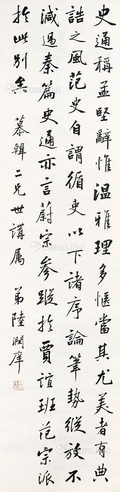 史通稱孟堅辭惟溫雅理多愜當其尤美者有典
誥之風范史自謂循吏以下諸序論筆勢縱放不
減過秦篇史通亦言蔚宗參蹤於賈誼班范宗派
於此別矣
慕韓二兄世講屬 弟陸潤庠